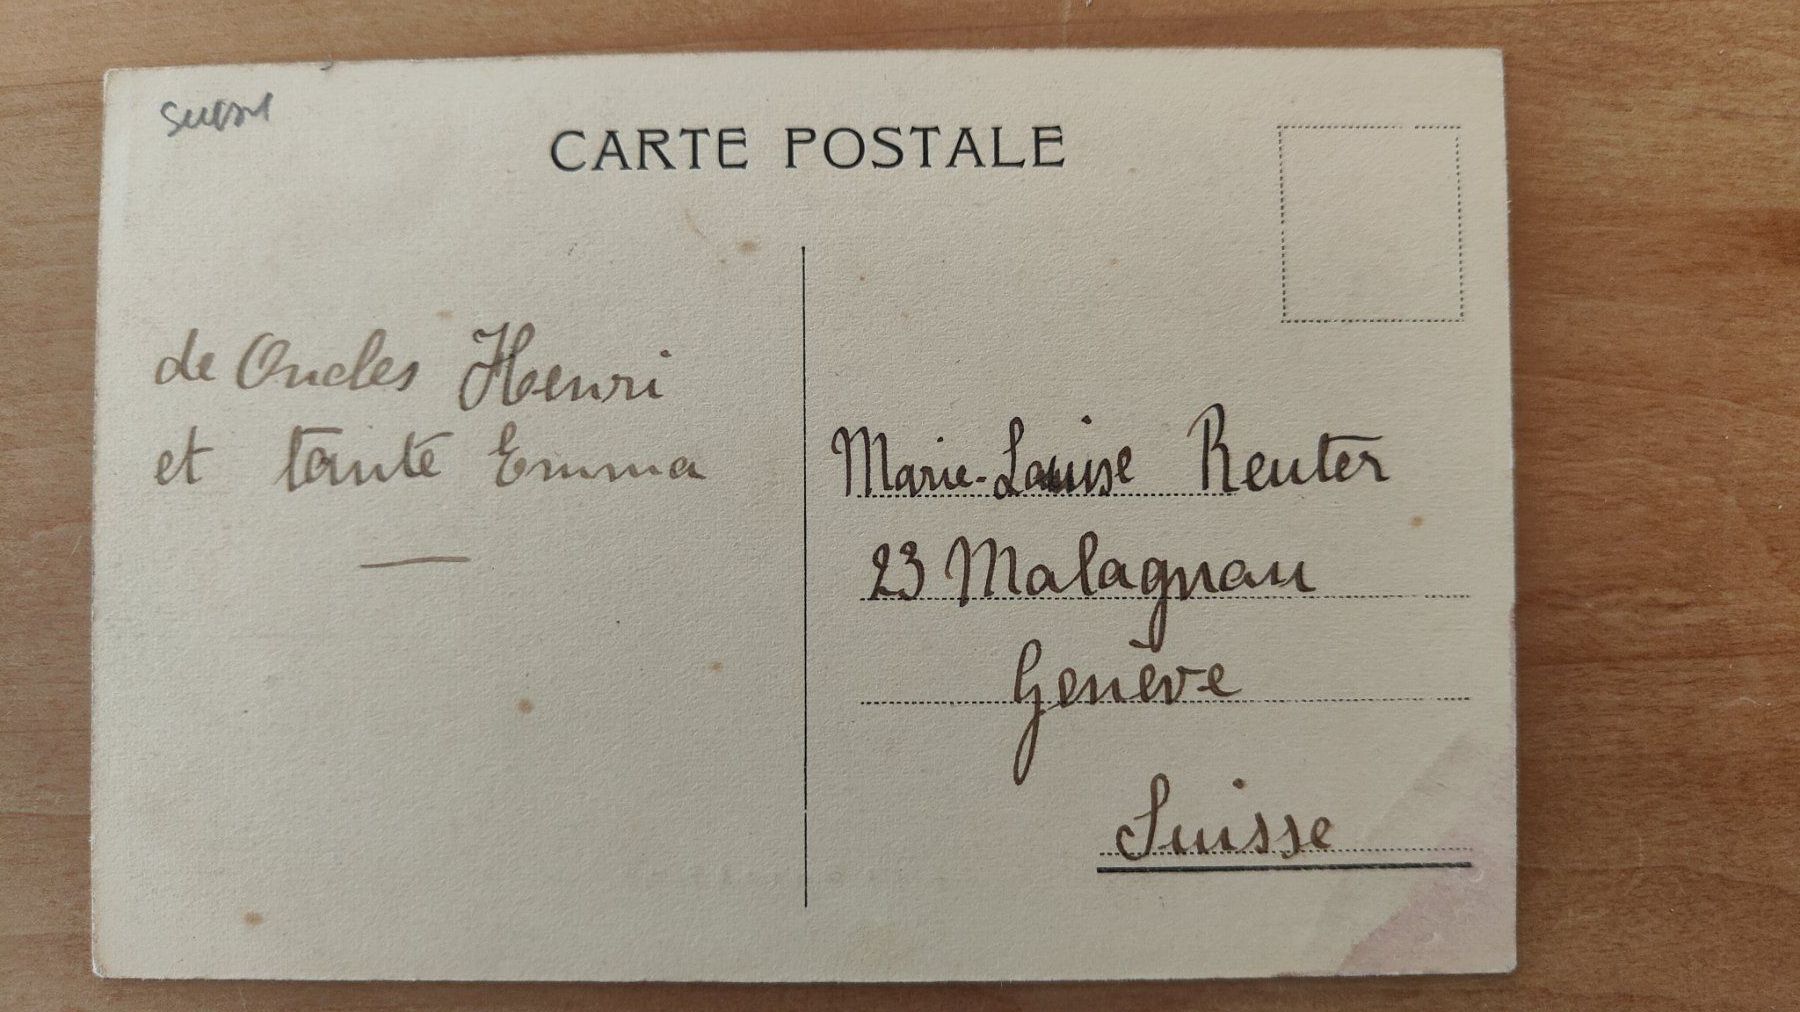 CARTE POSTALE
de Oncles Henri
et tante Emma
Marie-Louise Reuter
23 Malagnou
Genève
Suisse